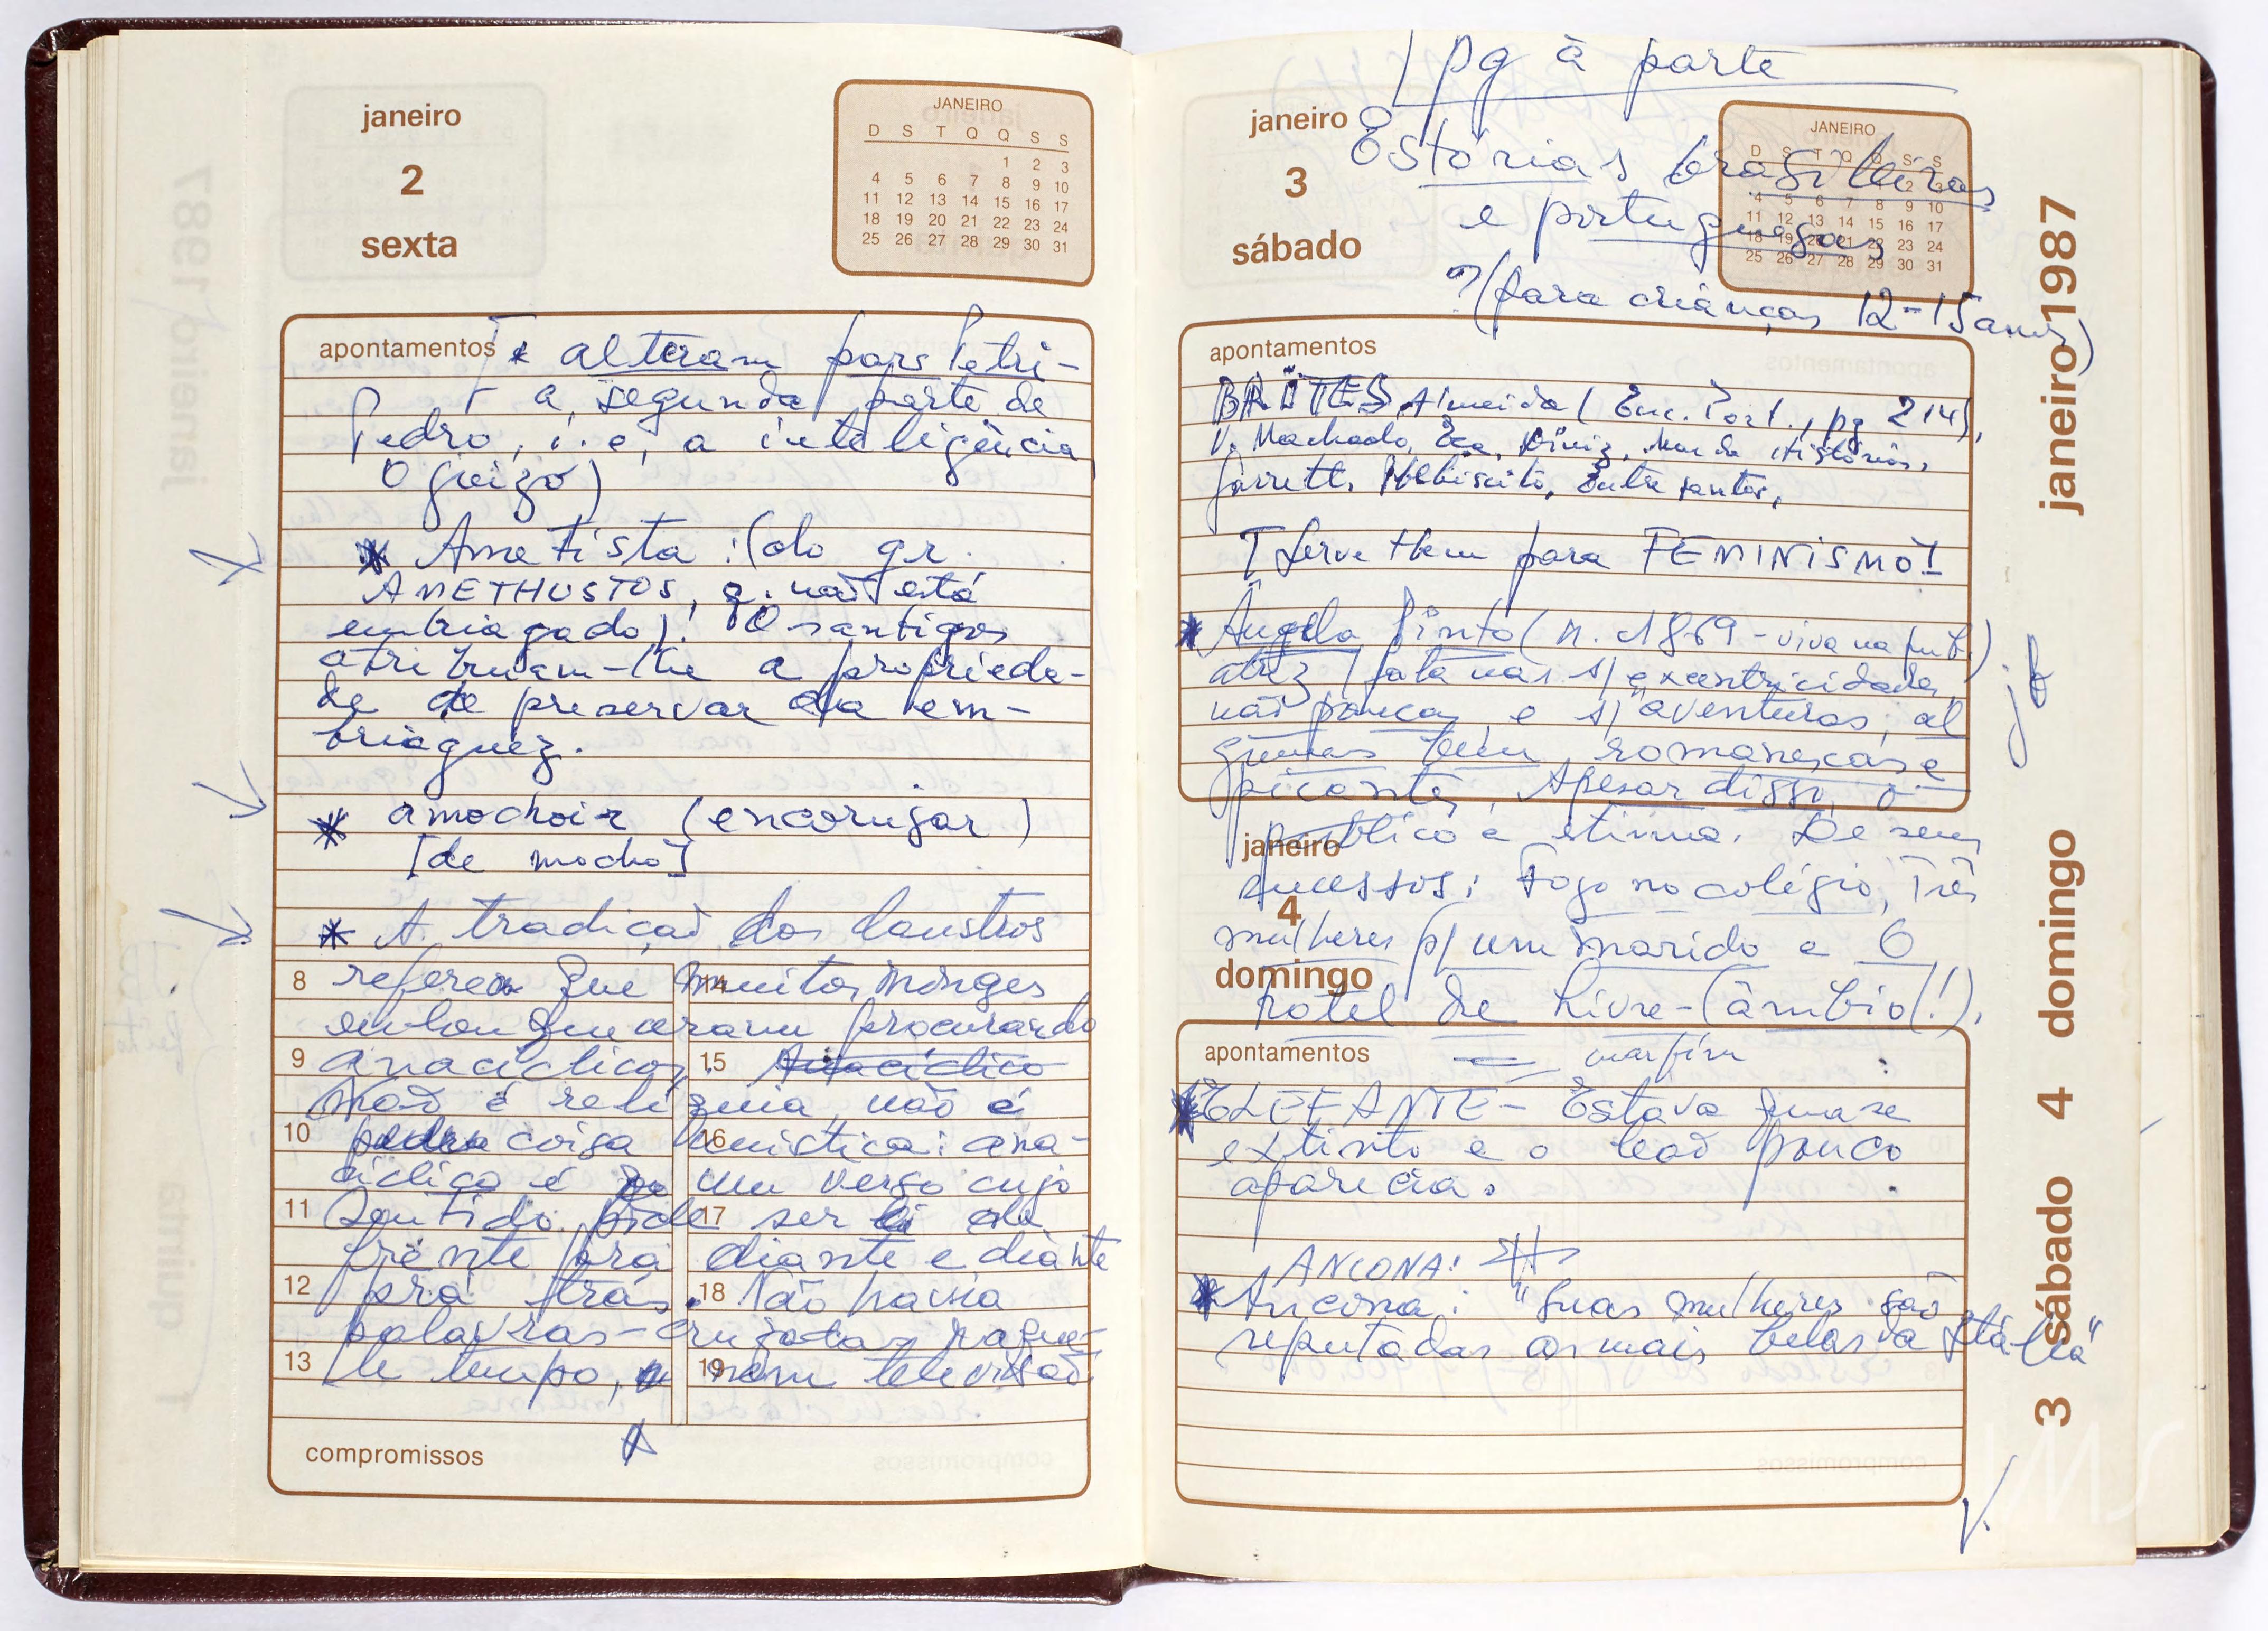 janeiro
2
sexta
JANEIRO
D S T Q Q S S
1 2 3
4 5 6 7 8 9 10
11 12 13 14 15 16 17
18 19 20 21 22 23 24
25 26 27 28 29 30 31
apontamentos
* alteram pars Petri-
a segunda parte de
Pedro, i. e, a inteligência,
O juízo)
* Ametista : (do gr.
AMETHUSTOS, q. não está
embriagado)! Os antigos
atribuiam-lhe a proprieda-
de de preservar da em-
briaguez.
* amochoir (encorujar)
[de mocho]
* A tradição dos claustros
8 refere que muitos monges 14
enlouqueceram procurando
9 anacíclicos. 15 Anacíclico
Não é relíquia, não é
10 coisa 16 : ana-
cíclico é um verso cujo
11 sentido pode 17 ser da
frente pra diante e diante
12 pra trás. 18 Não havia
palavras-cruzadas naque-
13 le tempo, 19 nem televisão.
compromissos
1 pg à parte
janeiro
3
sábado
JANEIRO
D S T Q Q S S
1 2 3
4 5 6 7 8 9 10
11 12 13 14 15 16 17
18 19 20 21 22 23 24
25 26 27 28 29 30 31
Estórias brasileiras
e portuguesas
?(para crianças 12-15 anos)
apontamentos
Almeida (Enc. Port., pg 214),
V. Machado, Eça, Diniz,
Garrett,
Serve tbem para FEMINISMO!
* Ângela Pinto (n. 1869 - viva na pub.)
atriz / s/ excentricidades,
não poucas e s/ aventuras, al
gumas bem romanescas e
picantes, Apesar disso, o
público a estima. De seus
sucessos: Fogo no colégio, Três
mulheres p/ um marido e O
hotel de Livre-Câmbio(!).
janeiro
4
domingo
apontamentos
marfim
* ELEFANTE - Estava quase
extinto e o leão pouco
aparecia.
ANCONA:
* Ancona: "Suas mulheres são
reputadas as mais belas da Itália"
3 sábado 4 domingo janeiro 1987
IMS